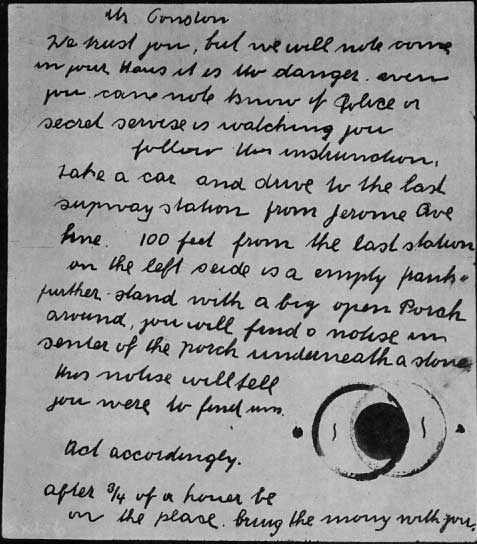 Mr Condon
We trust you, but we will note come
in your Haus it is to danger. even
you cane note know if Police or
secret servise is watching you
follow this instrunction.
Take a car and drive to the last
supway station from Jerome Ave
line. 100 feet from the last station
on the left seide is a empty frank-
further-stand with a big open Porch
around, you will find a notise in
senter of the porch underneath a stone.
this notise will tell
you were to find uns.
Act accordingly.
after 3/4 of a houer be
on the place. bring the mony with you.